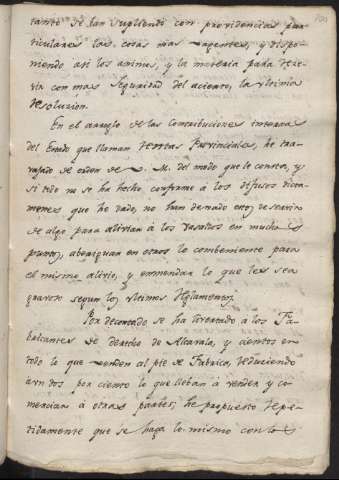 tanto se han supliendo con providencias par
ticulares las cosas mas urgentes, y dispo
niendo asi los animos, y la materia para dar
con mas seguridad del acierto, la ultima
resoluzion.
En el arreglo de las Contribuciones internas
del Estado que llaman rentas Provinciales, he tra
vajado de orden de S. M. del modo que le consta, y
si todo no se ha hecho conforme á los difusos dicta
menes que he dado, no han dexado estos de servir
de algo para aliviar á los vasallos en muchos
puntos, averiguar en otros lo combeniente para
el mismo alivio, y enmendar lo que les sea
gravoso segun los ultimos Reglamentos.
Por decontado se ha libertado á los Fa
bricantes de derecho de Alcavala, y cientos en
todo lo que venden al pie de Fabrica, reduziendo
á un dos por ciento lo que lleban á vender y co
merciar á otras partes; he propuesto repe
tidamente que se haga lo mismo con los